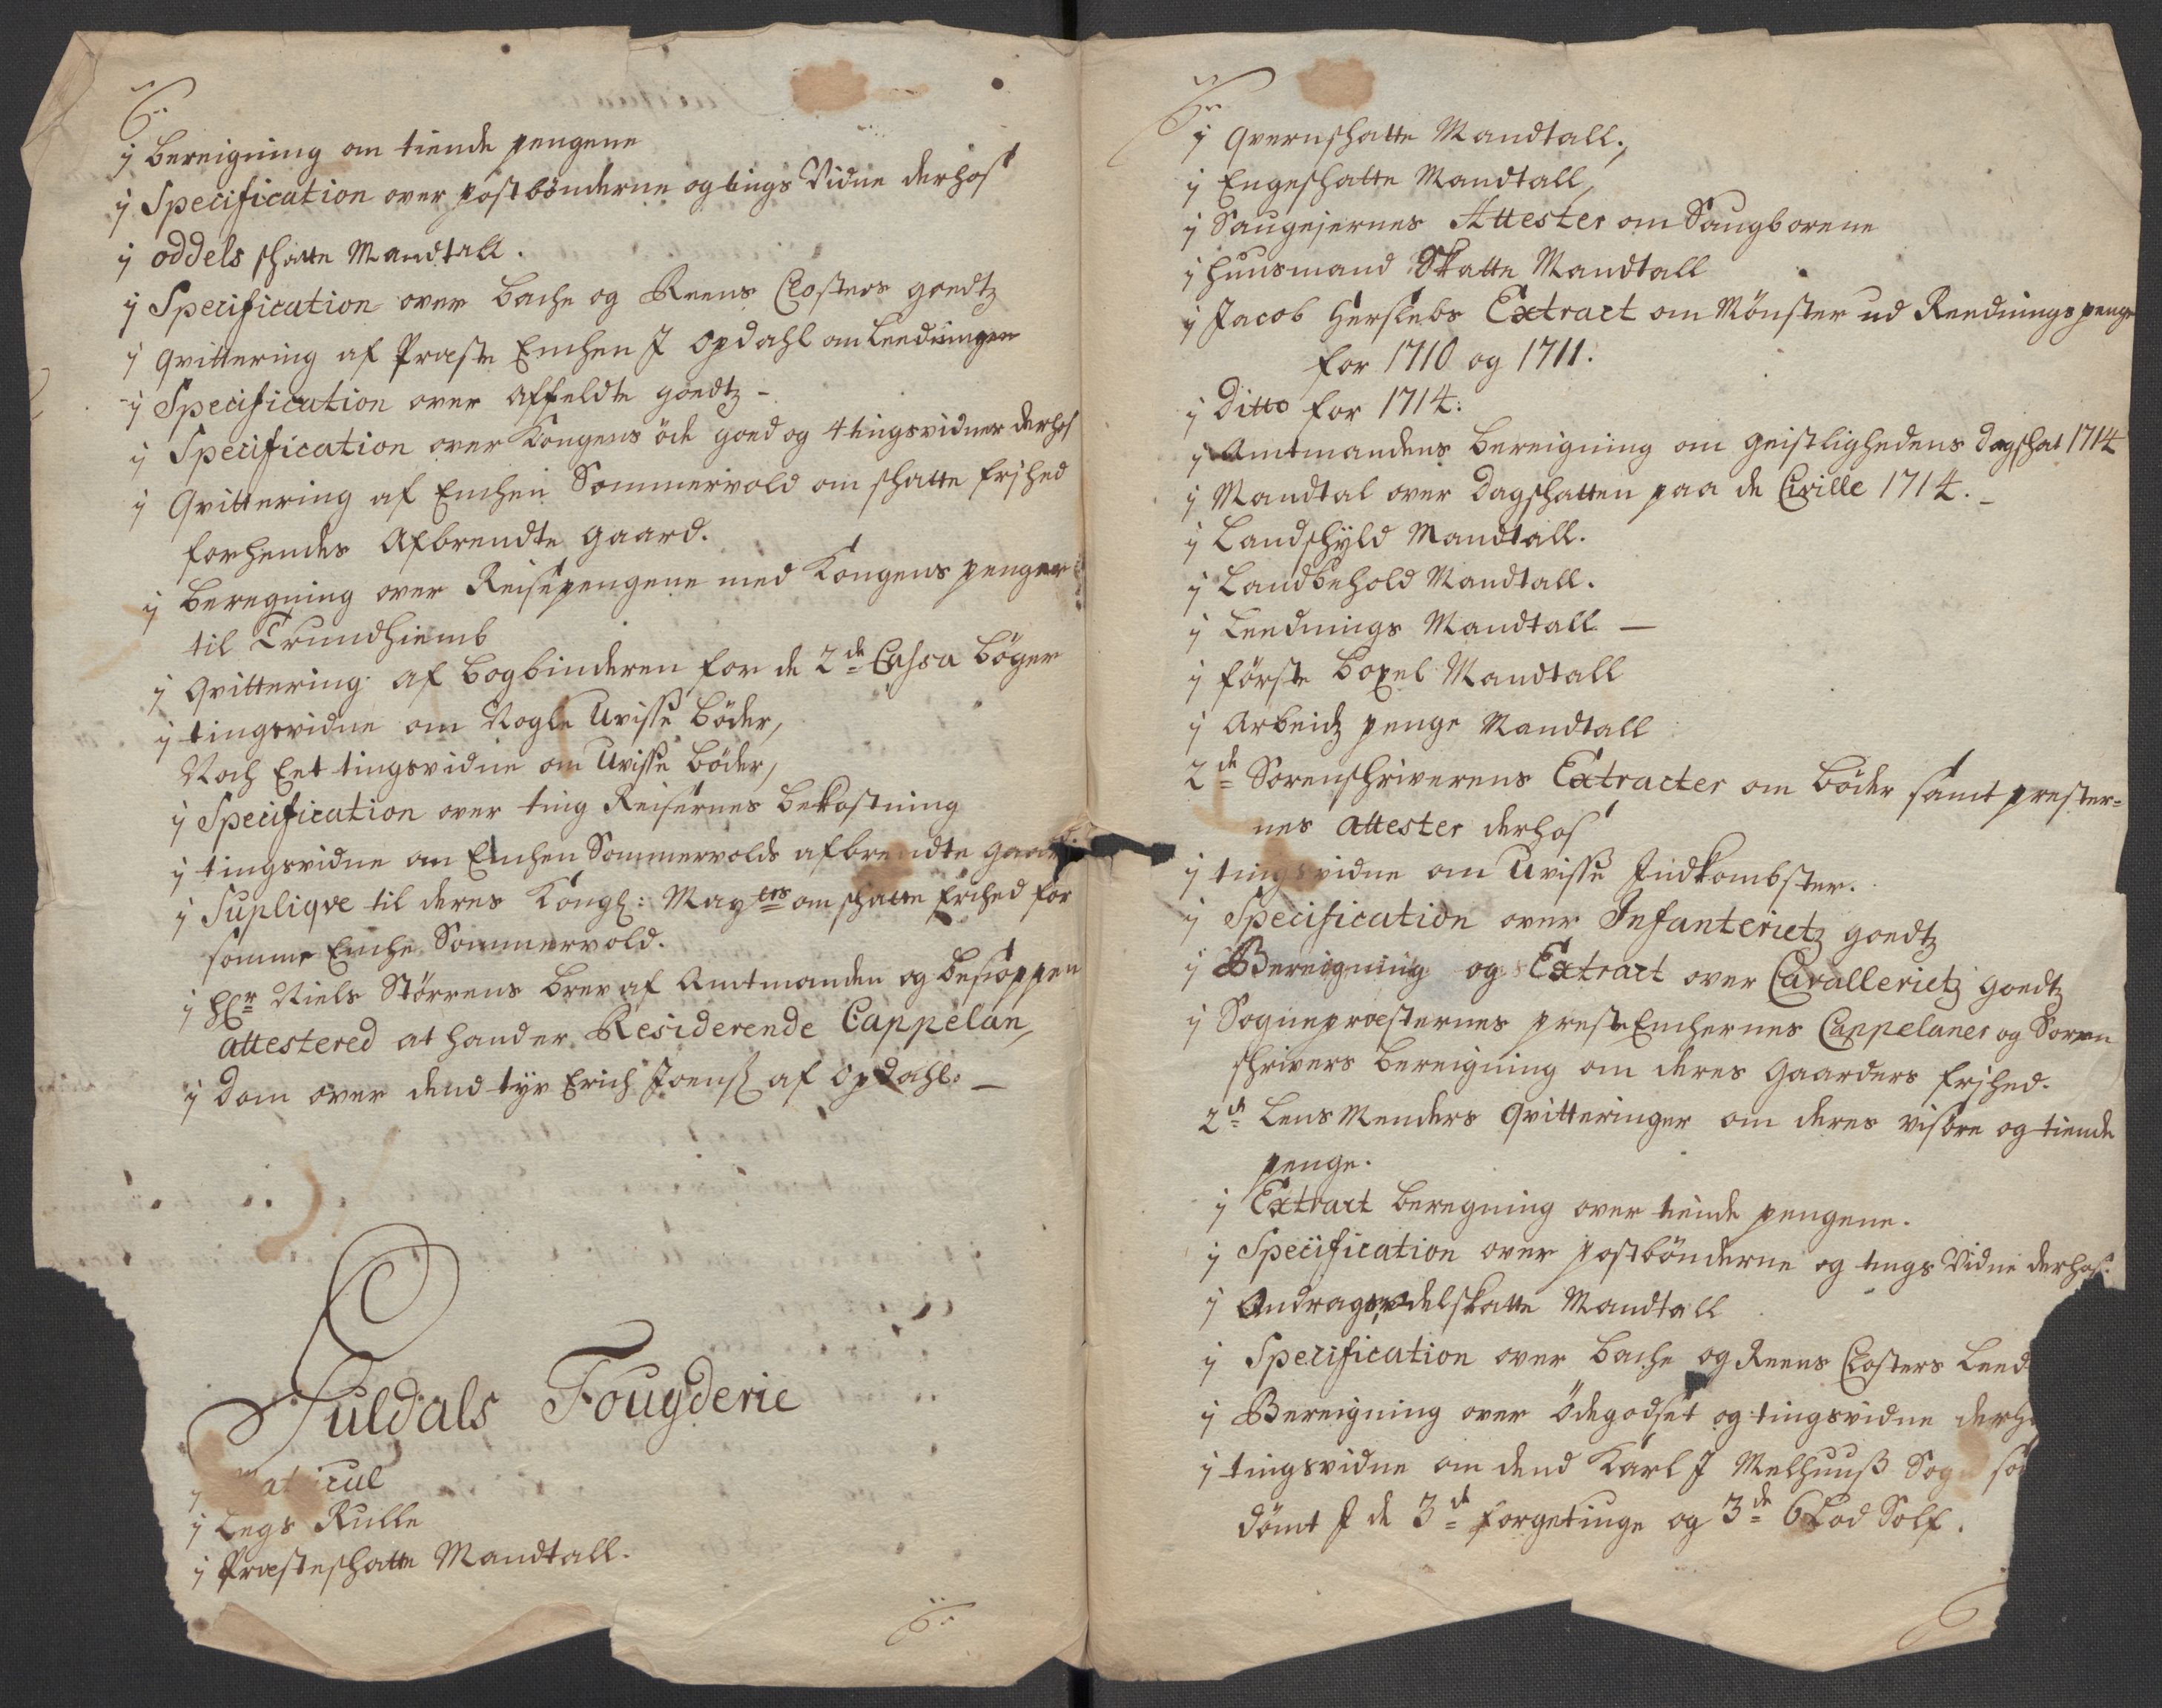 j Bereigning om tiende pengene
j Specification over postbönderne og tings Vidne derhos
j oddels schatte Mandtall.
j Specification over Bache og Reens Closters goedtz
j Qvittering af Præste Enchen J Opdahl om Leedingen
j Specification over affeldte goedtz -
j Specification over Kongens öde goed og 4 tingsvidner derhos
j Qvittering af Enchen Sommervold om schatte frjhed
forhendes Afbrendte gaard.
j Beregning over Reisepengene med Kongens penger
til Trundhiemb
j Qvittering af bogbinderen for de 2de Cassa Böger
j tingsvidne om Nogle Uvisse Böder,
Noch Eet tingsvidne om Uvisse Böder,
j Specification over ting Reisernes bekostning
j tingsvidne om Enchen Sommervolds afbrendte gaard
j Supliqve til deres Kongl: Mayts om schatte frihed for
samme Enche Sommervold.
j Hr Niels Störrens brev af Amtmanden og besioppen
attestered at hand er Residerende Cappelan,
j Dom over dend tyv Erich Joens af Opdahl. -
Guldals Fougderie
j Matricul
j Legs Rulle
j Præsteschatte Mandtall.
j Qvernschatte Mandtall.
j Engeschatte Mandtall,
j Saugejernes Attester om Saugborene
j huusmand Skatte Mandtall
j Jacob Herslebs Extract om Mönster ud Reednings penge
for 1710 og 1711.
j Ditto for 1714.
j Amtmandens bereigning om geistlighedens dagschat 1714
j Mandtal over dagschatten paa de Civille 1714. -
j Landschyld Mandtall.
j Landbohold Mandtall.
j Leednings Mandtall -
j förste boxel Mandtall
j Arbeidz penge Mandtall
2de Sorenschriverens Extracter om böder samt prester=
nes attester derhos
j tingsvidne om Uvisse Indkombster.
j Specification over Infanterietz goedtz
j Bereigning og Extract over Cavallerietz goedtz
j Sognepræsternes preste Enchernes Cappelaner og Soren
schrivers bereigning om deres gaarders frjhed.
2de Lens Menders Qvitteringer om deres visöre og tiende
penge.
j Extract beregning over tiende pengene.
j Specification over postbönderne og tings Vidne derhos.
j Andrags odelskatte Mandtall
j Specification over Bache og Reens Closters Leed
j Bereigning over ödegodset og tingsvidne derho
j tingsvidne om dend Karl J Melhuuß Sogn so
dömt J de 3de forgetinge og 3de 6 Lod Solf.